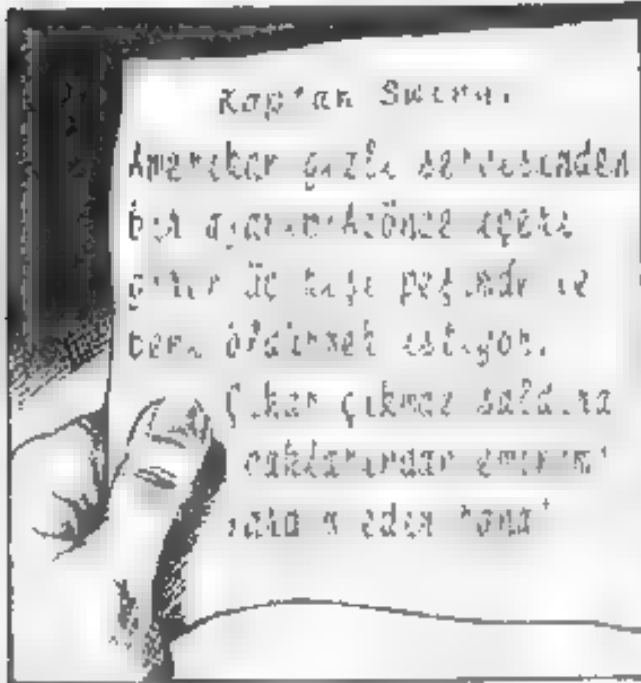 Kaptan Swing.
Amerikan gizli servisinden
bir ajanım. Az önce içeri
giren üç kişi peşimde ve
beni öldürmek istiyor.
Çıkar çıkmaz saldıra
caklarından eminim!
yardım edin bana!